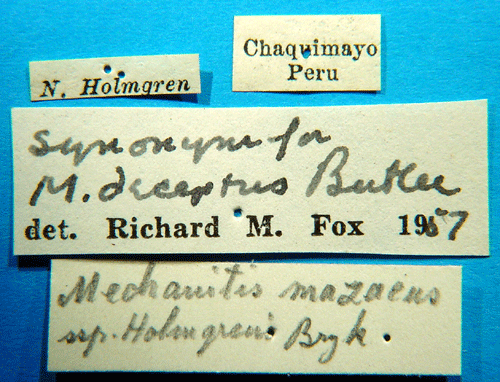 Chaquimayo
Peru
N. Holmgren
Synonym for
M. deceptus Butler
det. Richard M. Fox 1957
Mechanitis mazaeus
ssp. Holmgreni Bryk.